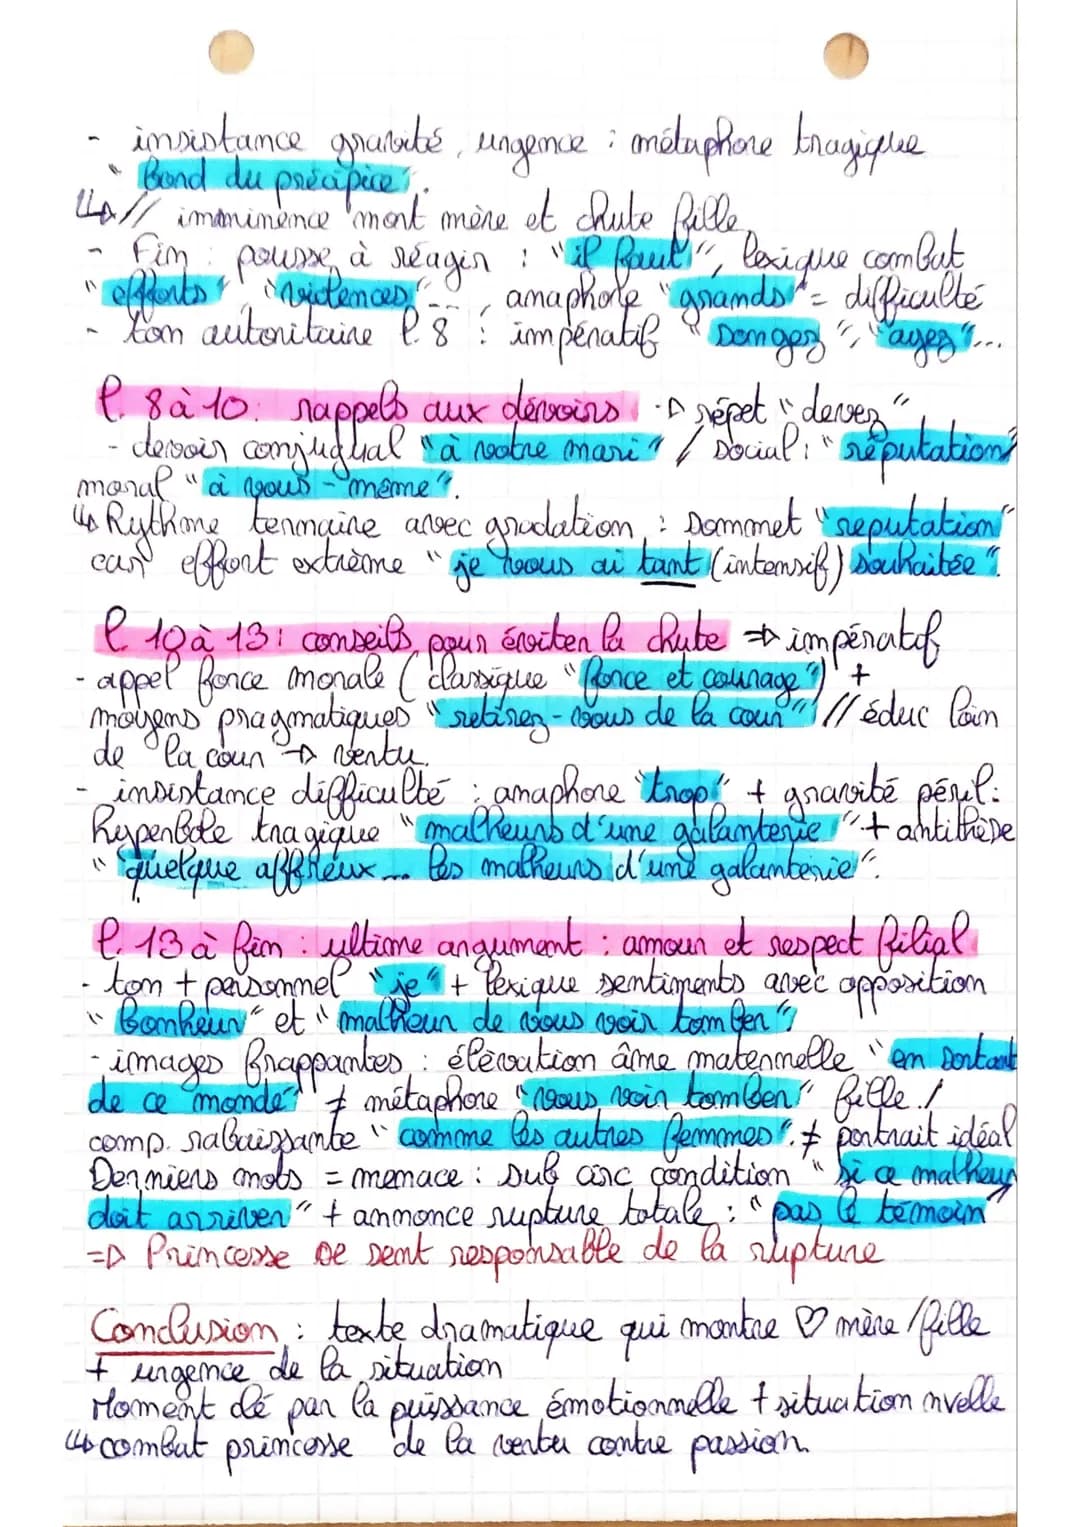 - insistance gravité, urgence : métaphore tragique
"bord du précipice".
↳ // imminence mort mère et chute fille
- Fin : pousse à réagir : "il faut", lexique combat
"efforts", "violences", anaphore "grands" = difficulté
- ton autoritaire l. 8 : impératif "songez", "ayez"...
l. 8 à 10 : rappels aux devoirs → répet "devez"
- devoir conjugual "à votre mari" / social : "réputation"
moral "à vous-même".
↳ Rythme ternaire avec gradation : sommet "reputation"
car effort extrème "je vous ai tant (intensif) souhaitée".
l. 10 à 13 : conseils pour éviter la chute ⇒ impératif
- appel force morale (classique "force et courage") +
moyens pragmatiques "retirez-vous de la cour" // éduc loin
de la cour → vertu.
- insistance difficulté : anaphore "trop" + gravité péril :
hyperbole tragique "malheurs d'une galanterie" + antithèse
"quelque affreux... les malheurs d'une galanterie".
l. 13 à fin : ultime argument : amour et respect filial
- ton + personnel "je" + lexique sentiments avec opposition
"bonheur" et "malheur de vous voir tomber"
- images frappantes : élévation âme maternelle "en sortant
de ce monde" ≠ métaphore "vous voir tomber" fille /
comp. rabaissante "comme les autres femmes". ≠ portrait idéal
Derniers mots = menace : sub circ condition "si ce malheur
doit arriver" + annonce rupture totale : "pas le témoin"
⇒ Princesse se sent responsable de la rupture
Conclusion : texte dramatique qui montre ♡ mère/fille
+ urgence de la situation
Moment clé par la puissance émotionnelle + situation nvelle
↳ combat princesse de la vertu contre passion.